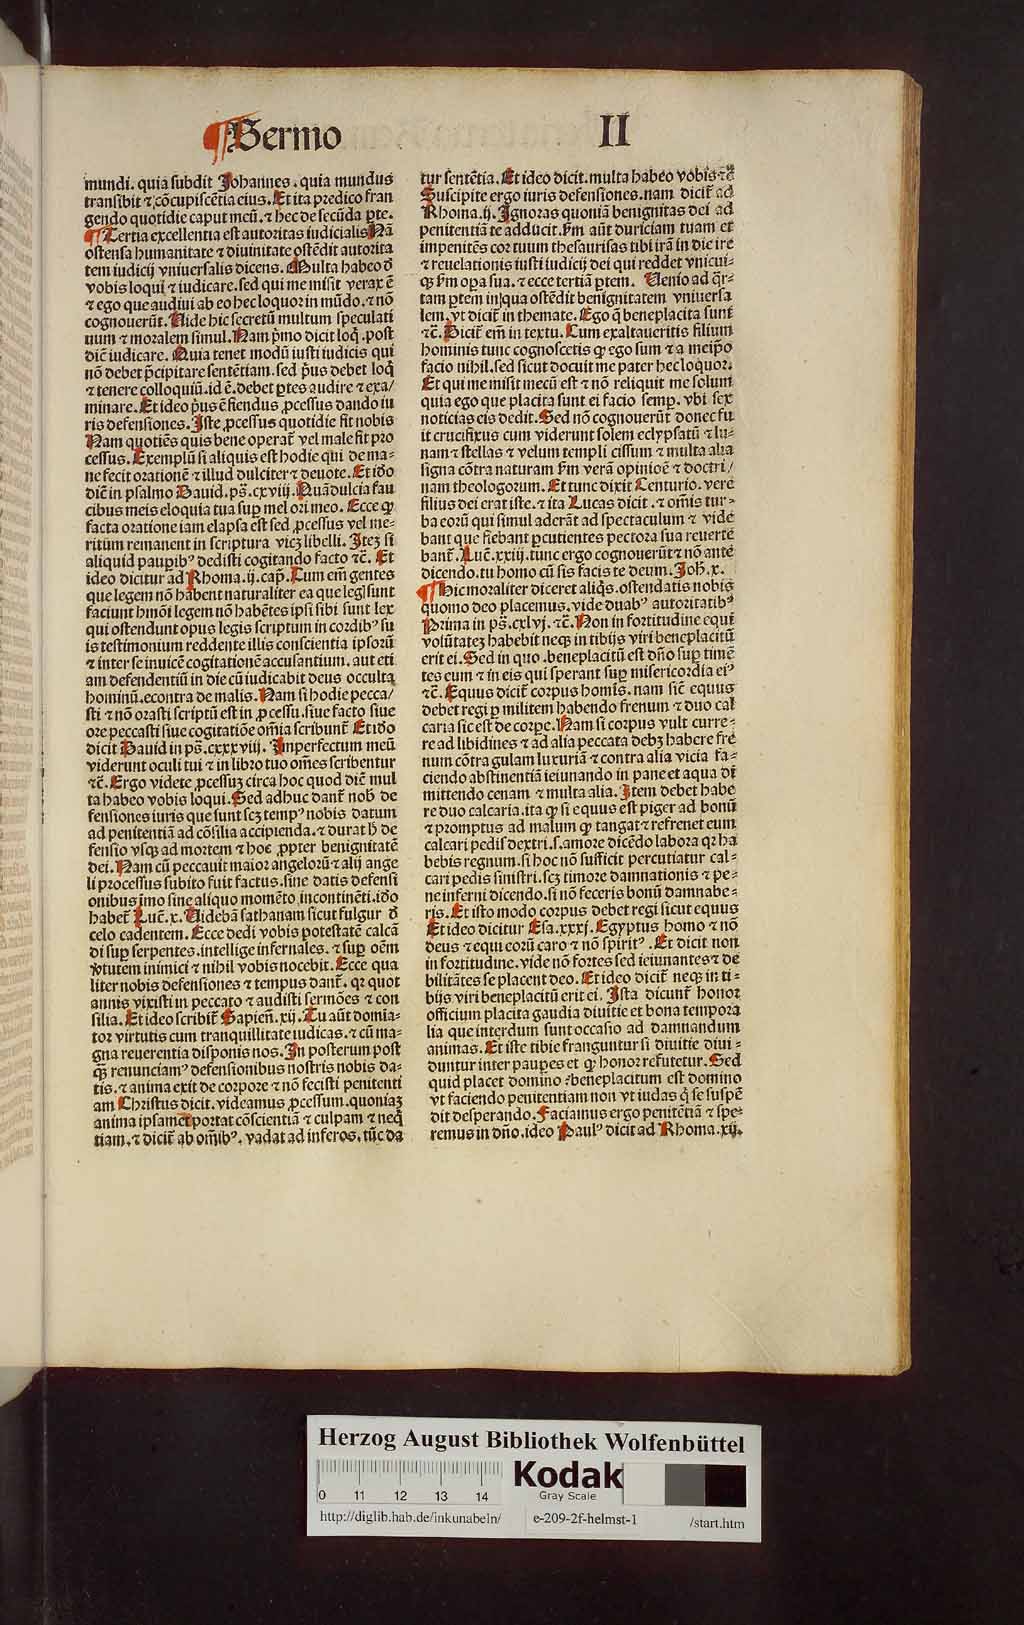 ¶Sermo II
mundi. quia subdit Johannes. quia mundus
transibit ⁊ cōcupiscētia eius. Et ita predico fran
gendo quotidie caput meū. ⁊ hec de secūda ꝑte.
¶Tertia excellentia est autoritas iudicialis Nā
ostensa humanitate ⁊ diuinitate ostēdit autorita
tem iudicij vniuersalis dicens. Multa habeo ď
vobis loqui ⁊ iudicare. sed qui me misit verax ē
⁊ ego que audiui ab eo hec loquor in mūdo. ⁊ nō
cognouerūt. Vide hic secretū multum speculati
uum ⁊ moralem simul. Nam pⁱmo dicit loq̄. post
diē iudicare. Quia tenet modū iusti iudicis qui
nō debet p̄cipitare sentētiam. sed pⁱus debet loq̄
⁊ tenere colloquiū. id ē. debet ꝑtes audire ⁊ exa/
minare. Et ideo pⁱus ē fiendus ꝓcessus dando iu
ris defensiones. Iste ꝓcessus quotidie fit nobis
Nam quotiēs quis bene operat᷑ vel male fit pro
cessus. Exemplū si aliquis est hodie qui de ma-
ne fecit orationē ⁊ illud dulciter ⁊ deuote. Et iďo
diē in psalmo Dauid. ps̄. cxviij. Quā dulcia fau
cibus meis eloquia tua suꝑ mel ori meo. Ecce ꝙ
facta oratione iam elapsa est sed ꝓcessus vel me-
ritum remanent in scriptura vicꝫ libelli. Iteꝫ si
aliquid paupibꝰ dedisti cogitando facto ⁊c̄. Et
ideo dicitur ad Rhoma. ij. cap̄. Cum em̄ gentes
que legem nō habent naturaliter ea que legl sunt
faciunt hmōi legem nō habētes ipsi sibi sunt lex
qui ostendunt opus legis scriptum in cordibꝰ su
is testimonium reddente illis conscientia ipsorū
⁊ inter se inuicē cogitationē accusantium. aut eti
am defendentiū in die cū iudicabit deus occulta
hominū. econtra de malis. Nam si hodie pecca/
sti ⁊ nō orasti scriptū est in ꝓcessu. siue facto siue
ore peccasti siue cogitatiōe om̄ia scribunt᷑ Et iďo
dicit Dauid in ps̄. cxxxviij. Imperfectum meū
viderunt oculi tui ⁊ in libro tuo om̄es scribentur
⁊c̄. Ergo videte ꝓcessuꝫ circa hoc quod diē mul
ta habeo vobis loqui. Sed adhuc dant᷑ nob̄ de
fensiones iuris que sunt scꝫ tempꝰ nobis datum
ad penitentiā ad cōsilia accipienda. ⁊ durat ꝉ de
fensio vsqꝫ ad mortem ⁊ hoc ꝓpter benignitatē
dei. Nam cū peccauit maior angelorū ⁊ alij ange
li processus subito fuit factus. sine datis defensi
onibus imo sine aliquo momēto incontinēti. iďo
habet᷑ Luē. x. Videbā sathanam sicut fulgur ď
celo cadentem. Ecce dedi vobis potestatē calcā
di suꝑ serpentes. intellige infernales. ⁊ suꝑ oēm
v̓tutem inimici ⁊ nihil vobis nocebit. Ecce qua
liter nobis defensiones ⁊ tempus dant᷑. qꝛ quot
annis vixisti in peccato ⁊ audisti sermōes ⁊ con
silia. Et ideo scribit᷑ Sapien̄. xij. Tu aūt domia-
tor virtutis cum tranquillitate iudicas. ⁊ cū ma-
gna reuerentia disponis nos. In posterum post
q̄ꝫ renunciamꝰ defensionibus nostris nobis da-
tis. ⁊ anima exit de corpore ⁊ nō fecisti penitenti
am Christus dicit. videamus ꝓcessum. quoniaꝫ
anima ipsamet portat cōscientiā ⁊ culpam ⁊ neq̄
tiam. ⁊ dicit᷑ ab om̄ibꝰ. vadat ad inferos. tūc da
tur sentētia. Et ideo dicit. multa habeo vobis ⁊c̄
Suscipite ergo iuris defensiones. nam dicit᷑ ad
Rhoma. ij. Ignoras quoniā benignitas dei ad
penitentiā te adducit. ẜm aūt duriciam tuam et
impenitēs cor tuum thesaurisas tibi irā in die ire
⁊ reuelationis iusti iudicij dei qui reddet vnicui-
qꝫ ẜm oꝑa sua. ⁊ ecce tertiā ꝑtem. Venio ad q̄r-
tam ꝑtem in qua ostēdit benignitatem vniuersa
lem. vt dicit᷑ in themate. Ego q̄ beneplacita sunt
⁊c̄. Dicit᷑ em̄ in textu. Cum exaltaueritis filium
hominis tunc cognoscetis qꝛ ego sum ⁊ a meip̄o
facio nihil. sed sicut docuit me pater hec loquor.
Et qui me misit mecū est ⁊ nō reliquit me solum
quia ego que placita sunt ei facio semꝑ. vbi sex
noticias eis dedit. Sed nō cognouerūt donec fu
it crucifixus cum viderunt solem eclypsatū ⁊ lu-
nam ⁊ stellas ⁊ velum templi cissum ⁊ multa alia
signa cōtra naturam ẜm verā opinioē ⁊ doctri/
nam theologorum. Et tunc dixit Centurio. vere
filius dei erat iste. ⁊ ita Lucas dicit. ⁊ om̄is tur-
ba eorū qui simul aderāt ad spectaculum ⁊ vide
bant que fiebant ꝑcutientes pectora sua reuerte
bant᷑. Luē. xxiij. tunc ergo cognouerūt ⁊ nō ante
dicendo. tu homo cū sis facis te deum. Joh̄. x.
¶Hic moraliter diceret aliq̄s. ostendatis nobis
quomo deo placemus. vide duabꝰ autoritatibꝰ
Prima in ps̄. cxlvj. ⁊c̄. Non in fortitudine equi
volūtateꝫ habebit neqꝫ in tibijs viri beneplacitū
erit ei. Sed in quo. beneplacitū est dn̄o suꝑ timē
tes eum ⁊ in eis qui sperant suꝑ misericordia eiꝰ
⁊c̄. Equus dicit᷑ corpus homīs. nam sic̄ equus
debet regi ꝑ militem habendo frenum ⁊ duo cal
caria sic est de corꝑe. Nam si corpus vult curre-
re ad libidines ⁊ ad alia peccata debꝫ habere fre
num cōtra gulam luxuriā ⁊ contra alia vicia fa-
ciendo abstinentiā ieiunando in pane et aqua di
mittendo cenam ⁊ multa alia. Item debet habe
re duo calcaria. ita ꝙ si equus est piger ad bonū
⁊ promptus ad malum ꝙ tangat ⁊ refrenet eum
calcari pedis dextri. s. amore dicēdo labora qꝛ ha
bebis regnum. si hoc nō sufficit percutiatur cal-
cari pedis sinistri. scꝫ timore damnationis ⁊ pe-
ne inferni dicendo. si nō feceris bonū damnabe-
ris. Et isto modo corpus debet regi sicut equus
Et ideo dicitur Esa. xxxj. Egyptus homo ⁊ nō
deus ⁊ equi eorū caro ⁊ nō spiritꝰ. Et dicit non
in fortitudine. vide nō fortes sed ieiunantes ⁊ de
bilitātes se placent deo. Et ideo dicit᷑ neqꝫ in ti-
bijs viri beneplacitū erit ei. Ista dicunt᷑ honor
officium placita gaudia diuitie et bona tempora
lia que interdum sunt occasio ad damnandum
animas. Et iste tibie franguntur si diuitie diui-
duntur inter pauꝑes et ꝙ honor refutetur. Sed
quid placet domino? beneplacitum est domino
vt faciendo penitentiam non vt iudas q̄ se suspē
dit desperando. Faciamus ergo penitētiā ⁊ spe-
remus in dn̄o. ideo Paulꝰ dicit ad Rhoma. xij.
Herzog August Bibliothek Wolfenbüttel
0 11 12 13 14
Kodak
Gray Scale
http://diglib.hab.de/inkunabeln/ e-209-2f-helmst-1 /start.htm